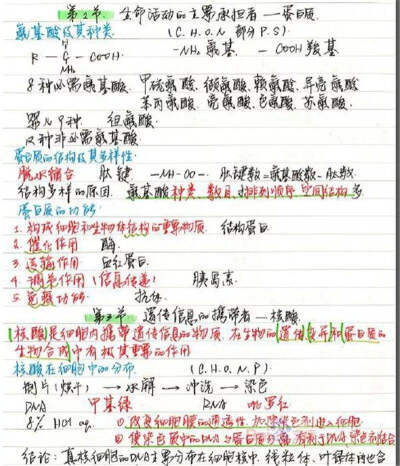 第2节 生命活动的主要承担者—蛋白质
氨基酸及其种类 (C.H.O.N 部分P.S)
H
R — C — COOH -NH₂ 氨基 -COOH 羧基
NH₂
8种必需氨基酸 甲硫氨酸 缬氨酸 赖氨酸 异亮氨酸
苯丙氨酸 亮氨酸 色氨酸 苏氨酸
婴儿9种 组氨酸
12种非必需氨基酸
蛋白质的结构及其多样性
脱水缩合 肽键 -NH-CO- 肽键数=氨基酸数-肽链数
结构多样的原因 氨基酸种类 数目 排列顺序 空间结构 多
蛋白质的功能
1. 构成细胞和生物体结构的重要物质 结构蛋白
2. 催化作用 酶
3. 运输作用 血红蛋白
4. 调节作用(信息传递) 胰岛素
5. 免疫功能 抗体
第3节 遗传信息的携带者—核酸
核酸是细胞内携带遗传信息的物质 在生物的遗传变异和蛋白质的
生物合成中有极其重要的作用
核酸在细胞中的分布 (C.H.O.N.P)
制片(烘干) → 水解 → 冲洗 → 染色
DNA 甲基绿 RNA 吡罗红
8% HCl aq. ①改变细胞膜的通透性 加速染色剂进入细胞
②使染色质中的DNA与蛋白质分离 有利于DNA与染色剂结合
结论: 真核细胞的DNA主要分布在细胞核中 线粒体、叶绿体内也含